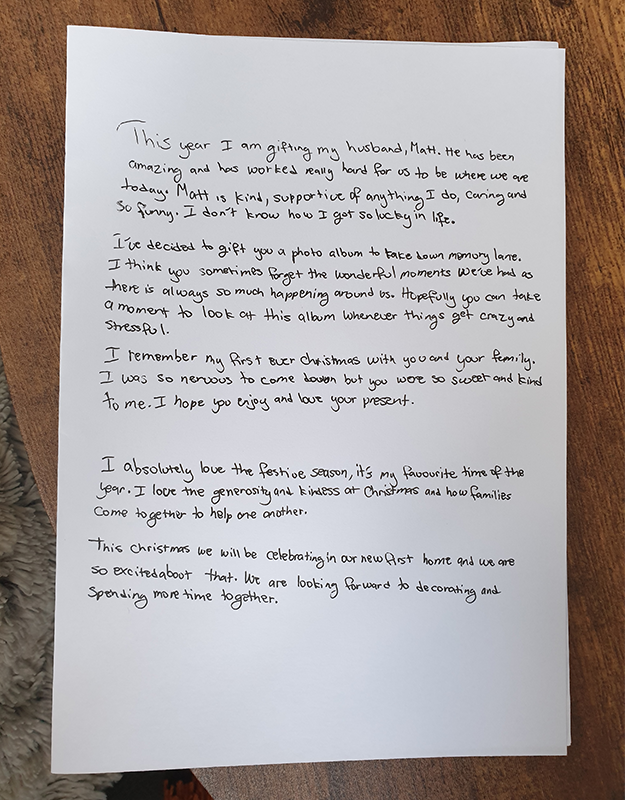 This year I am gifting my husband, Matt. He has been
amazing and has worked really hard for us to be where we are
today. Matt is kind, supportive of anything I do, caring and
so funny. I don't know how I got so lucky in life.
I've decided to gift you a photo album to take down memory lane.
I think you sometimes forget the wonderful moments we've had as
there is always so much happening around us. Hopefully you can take
a moment to look at this album whenever things get crazy and
stressful.
I remember my first ever christmas with you and your family.
I was so nervous to come down but you were so sweet and kind
to me. I hope you enjoy and love your present.
I absolutely love the festive season, it's my favourite time of the
year. I love the generosity and kindess at Christmas and how families
come together to help one another.
This christmas we will be celebrating in our new first home and we are
so excited about that. We are looking forward to decorating and
spending more time together.